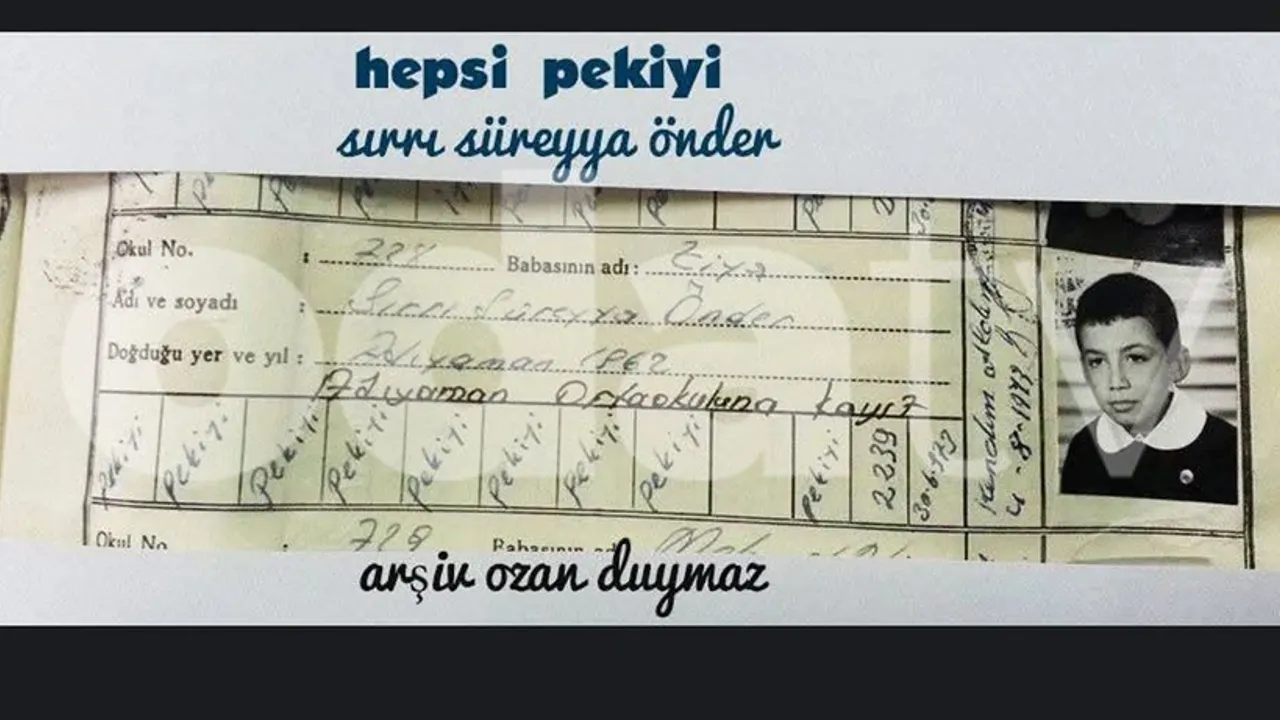 hepsi pekiyi
sırrı süreyya önder
Okul No. : 228 Babasının adı : Ziya
Adı ve soyadı : Sırrı Süreyya Önder
Doğduğu yer ve yıl : Adıyaman 1962
Adıyaman Ortaokuluna kayıt
pekiyi pekiyi pekiyi pekiyi pekiyi pekiyi pekiyi pekiyi pekiyi 2239 30-6-973
Kendim aldım
4-8-1973
Okul No. : 729 Babasının adı
arşiv ozan duymaz
odatv